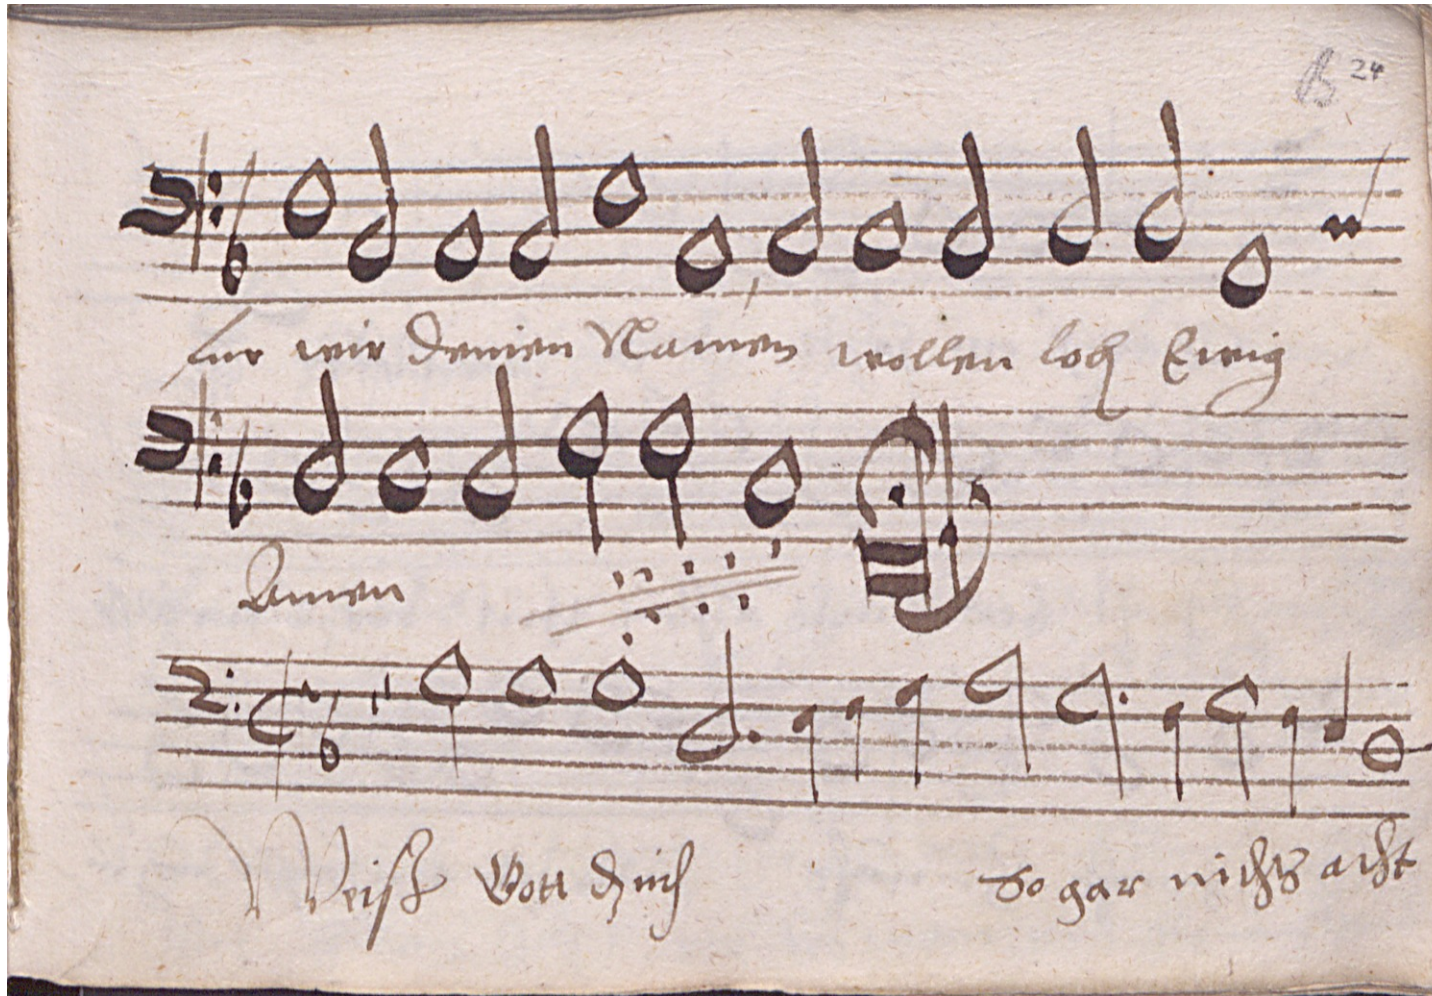 B 24
fur wir deinen Namen wollen lob Ewig
Amen
Weiß Gott dz ich so gar nichts acht